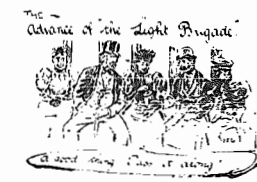 THE
Advance of "the Light Brigade".
A good thing Pass it along